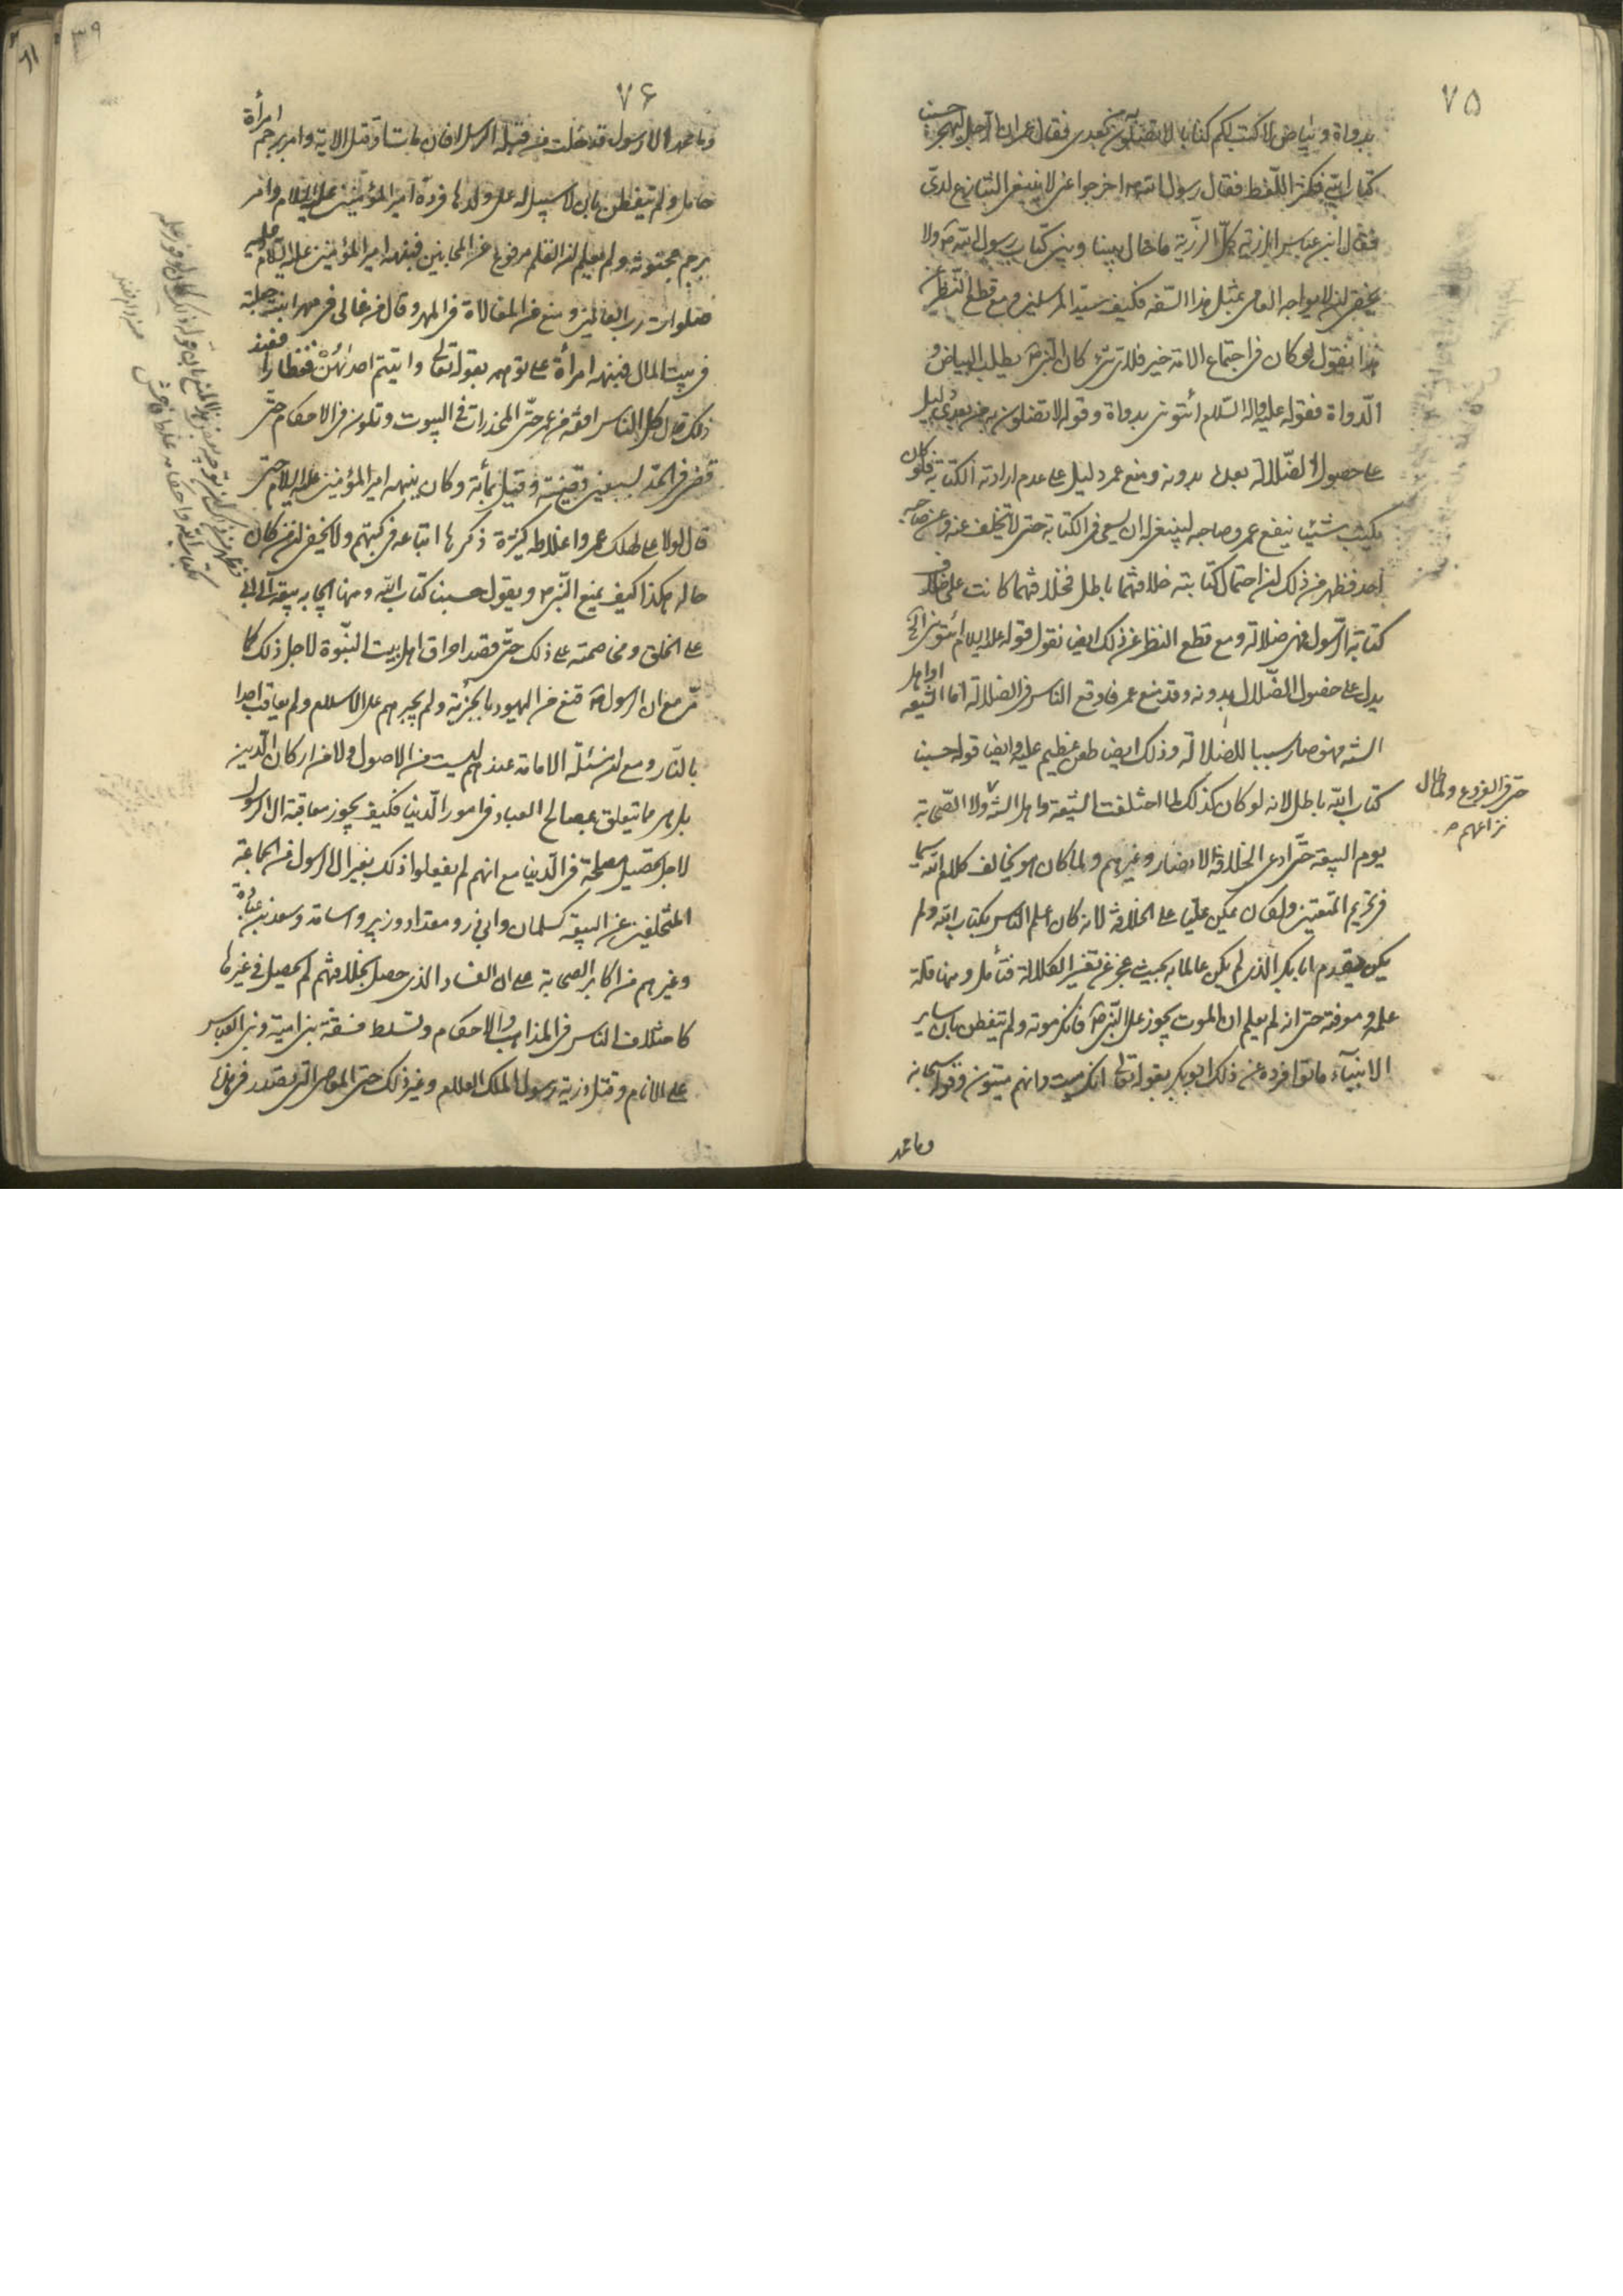 ٧٥
بدواة وبياض لاكتب لكم كتابا لا تضلون به من بعدى فقال عمر ان الرجل ليهجر حسبنا
كتاب الله فكثر اللغط فقال رسول الله ص اخرجوا عنى لا ينبغى التنازع لدى
فقال ابن عباس الرزية كل الرزية ما حال بيننا وبين كتاب رسول الله ص ولا
يخفى ان لا يواجه العامى بمثل هذا السفه فكيف سيد المرسلين ومع قطع النظر عن
هذا نقول لو كان فى اجتماع الامة خير فلاى شىء كان النبى ص يطلب البياض و
الدواة فقوله عليه واله السلام ائتونى بدواة وقوله لا تضلون به من بعدى دليل
على حصول الضلالة بعده بدونه ومنع عمر دليل على عدم ارادته الكتابة فلو كان
يكتب شيئا ينفع عمر وصاحبه لينبغى له ان يسعى فى الكتابة حتى لا تخلف عنه وعن صاحبه
احد فظهر من ذلك ان احتمال كتابته خلافتهما باطل فخلافتهما كانت على خلاف
كتابة الرسول فهى ضلالة ومع قطع النظر عن ذلك ايضا نقول قوله عليه السلام ائتونى الخ
يدل على حصول الضلال بدونه وقد منع عمر فاوقع الناس فى الضلالة اما الشيعة او اهل
السنة فهو صار سببا للضلالة وذلك ايضا طعن عظيم عليه وايضا قوله حسبنا
كتاب الله باطل لانه لو كان كذلك لما اختلفت الشيعة واهل السنة ولا الصحابة
حتى فى الفروع ولما طال
نزاعهم ص
يوم السقيفة حتى ادعى الخلافة الانصار وغيرهم ولما كان هو يخالف كلام الله سيما
فى تحريم المتعتين ولكان يمكن عليا على الخلافة لانه كان اعلم الناس بكتاب الله ولم
يكن يقدم ابا بكر الذى لم يكن عالما به بحيث عجز عن تفسير الكلالة فتأمل ومنها قلة
علمه ومعرفته حتى انه لم يعلم ان الموت يجوز على النبى ص فانكر موته ولم يتفطن بان ساير
الانبياء ماتوا فرده عن ذلك ابو بكر بقوله تعالى انك ميت وانهم ميتون وقوله سبحانه
وما محمد
٧۶
وما محمد الا رسول قد خلت من قبله الرسل افان مات او قتل الاية وامر برجم امرأة
حامل ولم يتفطن بان لا سبيل له على ولدها فرده امير المؤمنين عليه السلام وامر
برجم مجنونة ولم يعلم ان القلم مرفوع عن المجانين فنبهه امير المؤمنين عليه السلام عليه
صلوات رب العالمين ومنع من المغالاة فى المهر وقال من غالى فى مهر ابنته جعلته
فى بيت المال فنبهته امرأة على توهمه بقوله تعالى واتيتم احدىهن قنطارا فعند
ذلك قال كل الناس افقه من عمر حتى المخدرات فى البيوت وتلون فى الاحكام حتى
قضى فى الحد بسبعين قضية وقيل بمأة وكان ينبهه امير المؤمنين عليه السلام حتى
قال لولا على لهلك عمر واغلاطه كثيرة ذكرها اتباعه فى كتبهم ولا يخفى ان من كان
حاله هكذا كيف يمنع النبى ص ويقول حسبنا كتاب الله ومنها ايجابه بيعة ابى بكر
على الخلق ومخاصمته على ذلك حتى قصد احراق اهل بيت النبوة لاجل ذلك كما
مر مع ان الرسول ص قنع من اليهود بالجزية ولم يجبرهم على الاسلام ولم يعاقب احدا
بالنار ومع ان مسئلة الامامة عندهم ليست من الاصول ولا من اركان الدين
بل هى مما يتعلق بمصالح العباد فى امور الدنيا فكيف يجوز معاقبة ال الرسول
لاجل تحصيل مصلحة فى الدنيا مع انهم لم يفعلوا ذلك بغير ال الرسول من الجماعة
المتخلفين عن البيعة كسلمان وابى ذر ومقداد وزبير واسامة وسعد بن عبادة
وغيرهم من اكابر الصحابة على ان الفساد الذى حصل بخلافتهم لم يحصل فى غيرها
كاختلاف الناس فى المذاهب والاحكام وتسلط فسقة بنى امية وبنى العباس
على الانام وقتل ذرية رسول الملك العلام وغير ذلك حتى المعاصى التى تصدر فى هذا